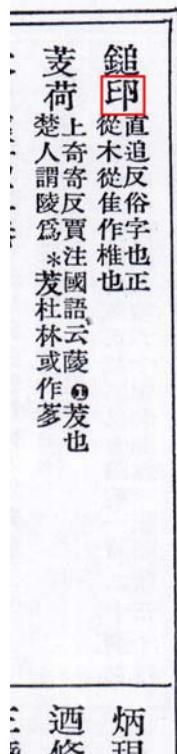 鎚印直追反俗字也正
從木從隹作椎也
芰荷上奇寄反賈注國語云薐❶芰也
楚人謂陵爲*芰杜林或作茤
炳
迺